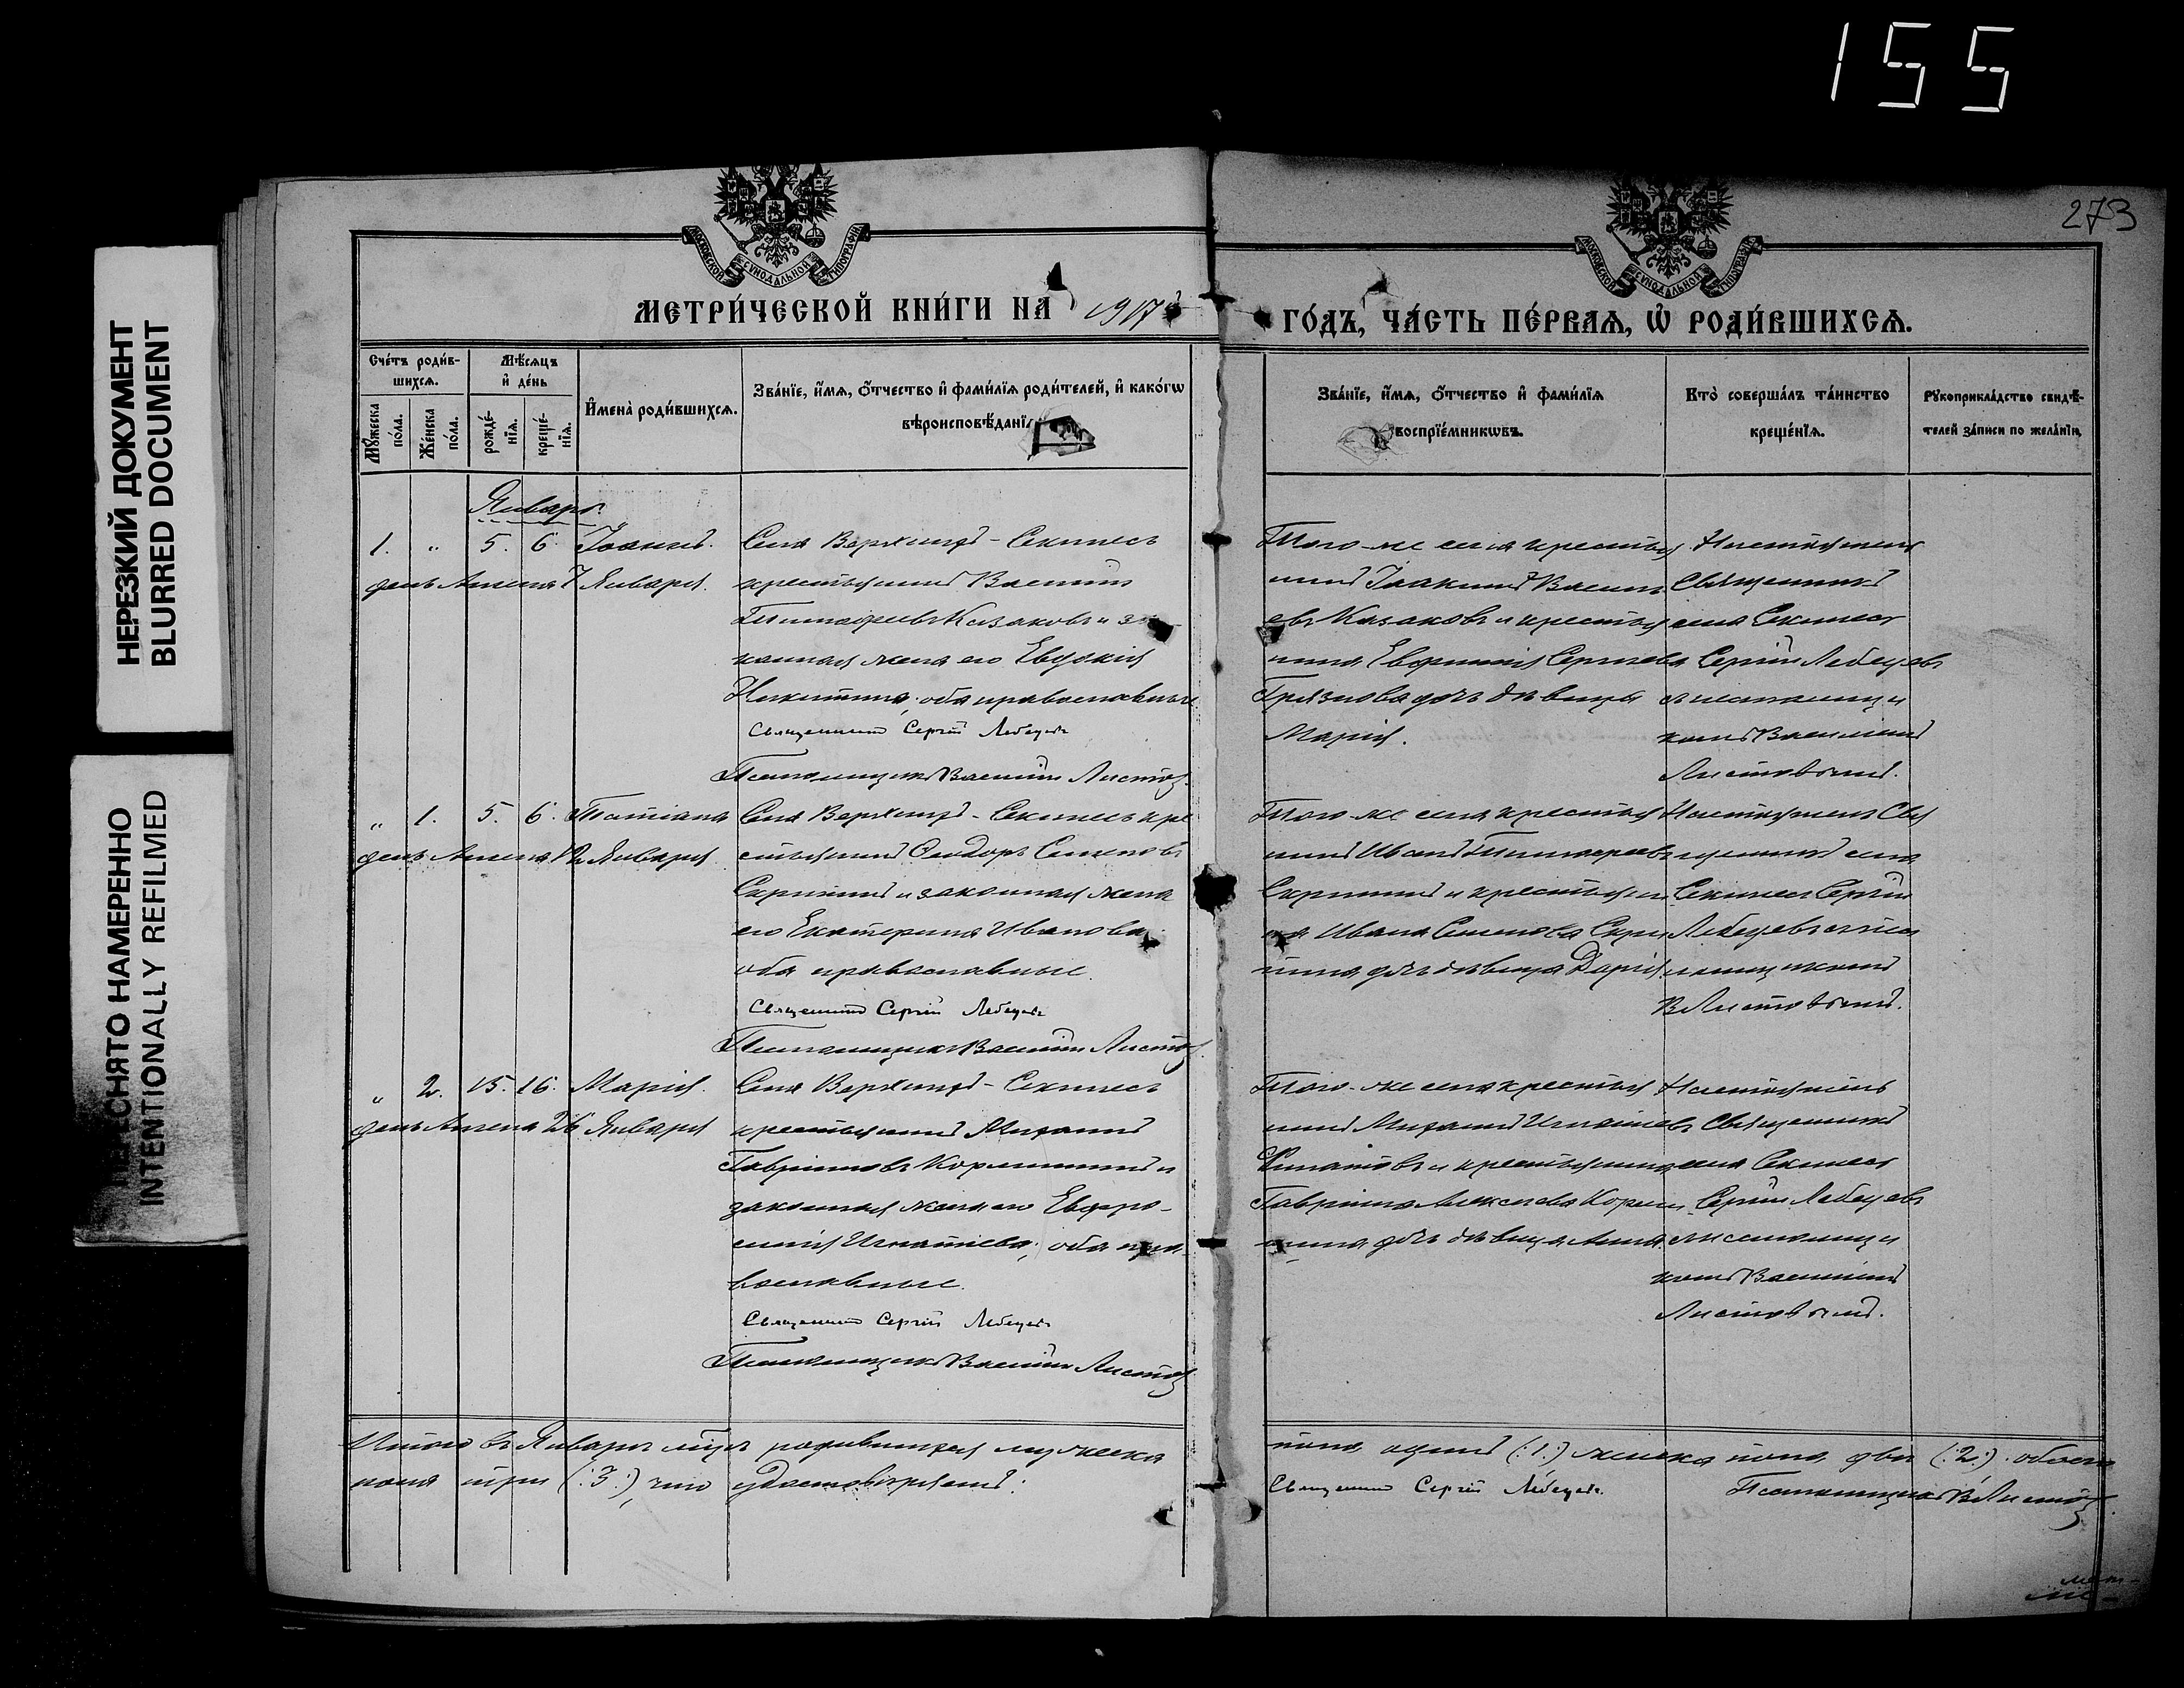 155
НЕРЕЗКИЙ ДОКУМЕНТ
BLURRED DOCUMENT
ПЕРЕСНЯТО НАМЕРЕННО
INTENTIONALLY REFILMED
273
МОСКОВСКОЙ СѴНОДАЛЬНОЙ ТИПОГРАФІИ
МОСКОВСКОЙ СѴНОДАЛЬНОЙ ТИПОГРАФІИ
МЕТРИ́ЧЕСКОЙ КНИ́ГИ НА 1917
ГО́ДЪ, ЧА́СТЬ ПЕ́РВАѦ, Ѡ РОДИ́ВШИХСѦ.
Сче́тъ роди́в-
шихсѧ.
Мꙋжеска по́ла.
Же́нска по́ла.
Мѣ́сѧцъ
и҆ де́нь
рожде́-
нїѧ.
креще́-
нїѧ.
И҆мена̀ роди́вшихсѧ.
Зва́нїе, и҆́мѧ, ѻ҆́тчество и҆ фами́лїѧ роди́телей, и҆ како́гѡ
вѣроисповѣ́данїѧ
Зва́нїе, и҆́мѧ, ѻ҆́тчество и҆ фами́лїѧ
воспрїе́мникѡвъ.
Кто̀ соверша́лъ та́инство
креще́нїѧ.
Рꙋкоприкла́дство свидѣ́-
телей за́писи по жела́нїю
Январь.
1. „ 5. 6. Іоаннъ.
день Ангела 7 Января.
Села Верхнихъ-Секинесь
крестьянинъ Василій
Тимофеевъ Казаковъ и за-
конная жена его Евдокія
Никитина; оба православные
Священникъ Сергій Лебедевъ
Псаломщикъ Василій Листов
Того-же села крестья
нинъ Іоакимъ Василь
евъ Казаковъ и крестья
нина Сергеева
Грязнова дочь девица
Марія.
Настоятель
Священникъ
села Секинесъ
Сергій Лебедевъ
с псаломщи
комъ Василіемъ
Листовымъ.
„ 1. 5. 6. Татіана
день Ангела 12 Января.
Села Верхнихъ-Секинесь кре
стьянинъ Феодоръ Семеновъ
Скрипинъ и законная жена
его Екатерина Иванова;
оба православные.
Священникъ Сергій Лебедевъ
Псаломщикъ Василій Листов
Того-же села крестья
нинъ Иванъ Тимофеевъ
Скрипинъ и крестьяни
на Ивана Семенова Скри
пина дочь девица Дарія.
Настоятель Свя
щенникъ села
Секинесъ Сергій
Лебедевъ с пса
ломщикомъ
В. Листовымъ.
„ 2. 15. 16. Марія.
день Ангела 26 Января
Села Верхнихъ-Секинесь
крестьянинъ Михаилъ
Гавріиловъ Кормилинъ и
законная жена его Евфро-
синія Игнатіева; оба пра-
вославные.
Священникъ Сергій Лебедевъ
Псаломщикъ Василій Листов
Того-же села крестья
нинъ Михаилъ Игнатіевъ
Филатовъ и крестьянина
Гавріила Алексеева Корми
лина дочь девица Анна.
Настоятель
Священникъ
села Секинесъ
Сергій Лебедевъ
с псаломщи
комъ Василіемъ
Листовымъ.
Итого въ Январе м-це родившихся мужеска пола одинъ (:1:) женска пола две (:2:). обоего
пола три (:3:), что удостоверяемъ: Священникъ Сергій Лебедевъ. Псаломщикъ В. Листов